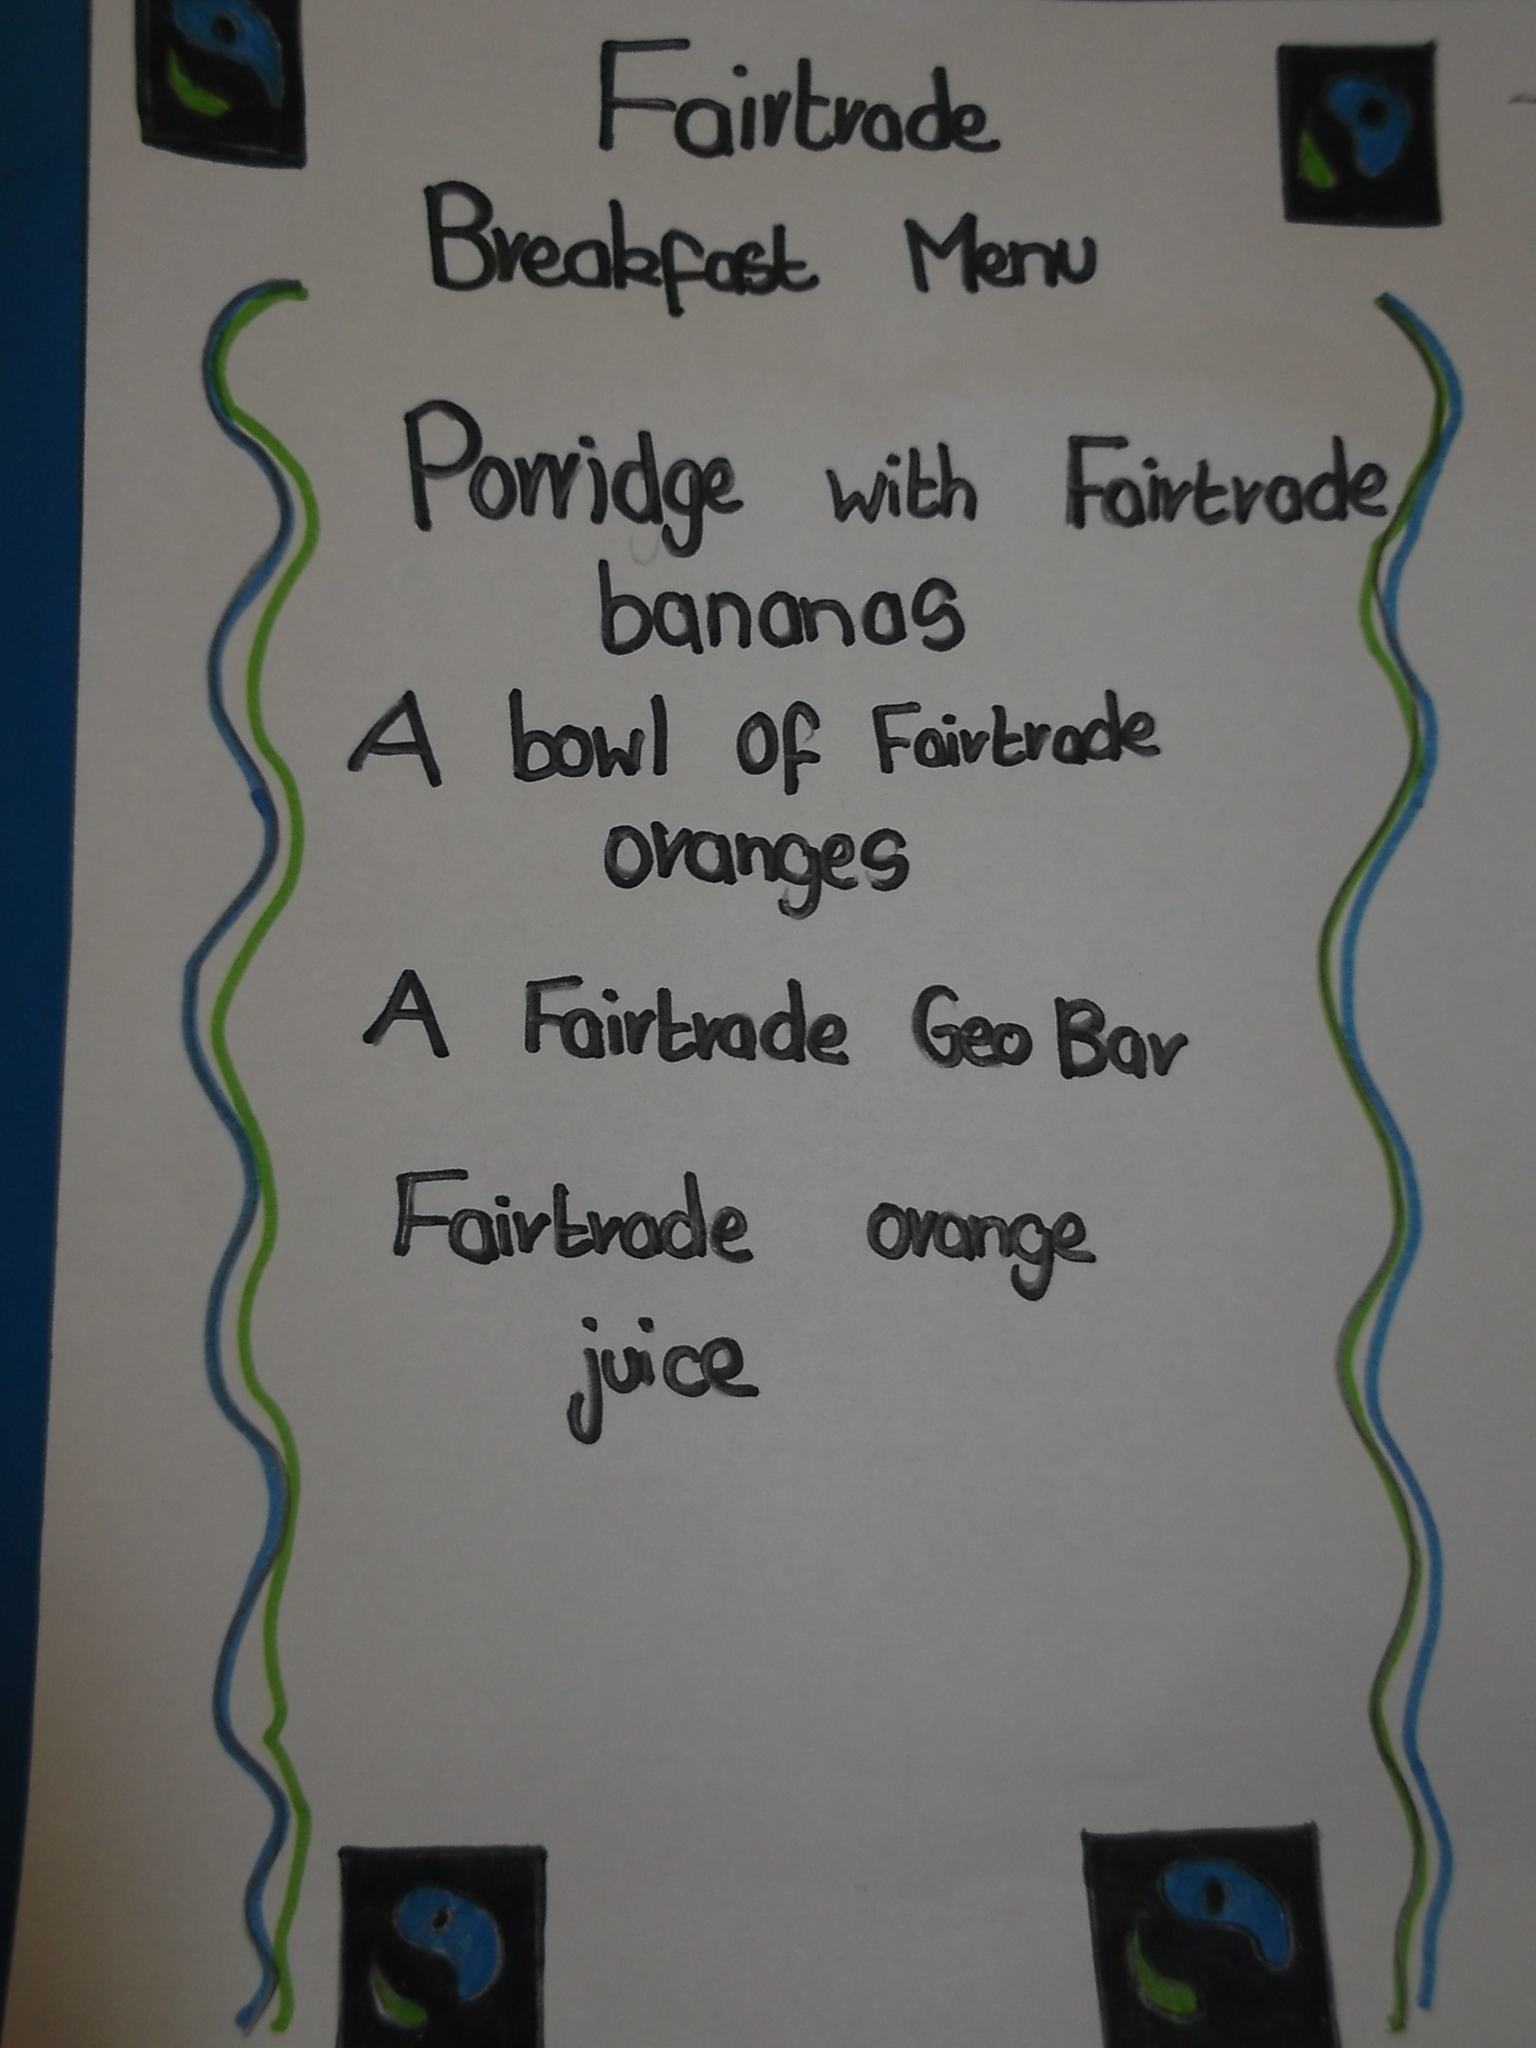 Fairtrade
Breakfast Menu
Porridge with Fairtrade
bananas
A bowl of Fairtrade
oranges
A Fairtrade Geo Bar
Fairtrade orange
juice